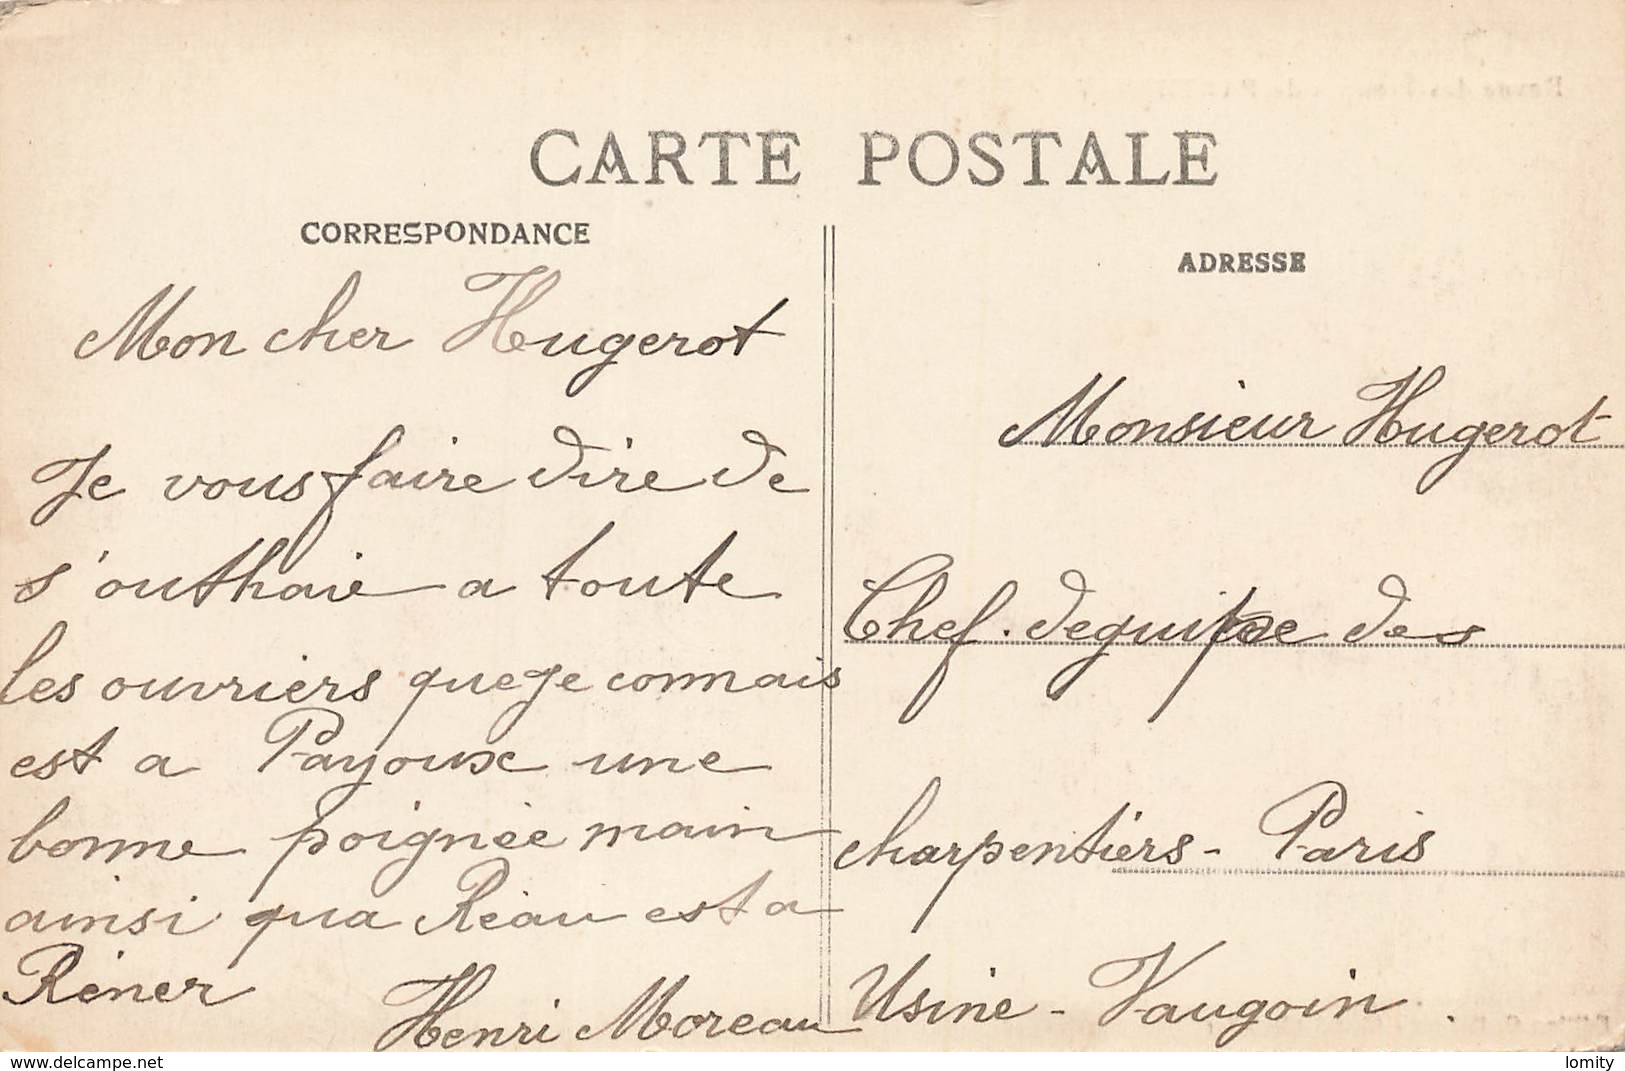 CARTE POSTALE
CORRESPONDANCE
Mon cher Hugerot
Je vous faire dire de
s'outhaie a toute
les ouvriers que je connais
est a Payoux une
bonne poignée main
ainsi qua Réau est a
Réner
Henri Moreau
ADRESSE
Monsieur Hugerot
Chef. dequipe des
charpentiers - Paris
Usine - Vaugoin.
www.delcampe.net
lomity